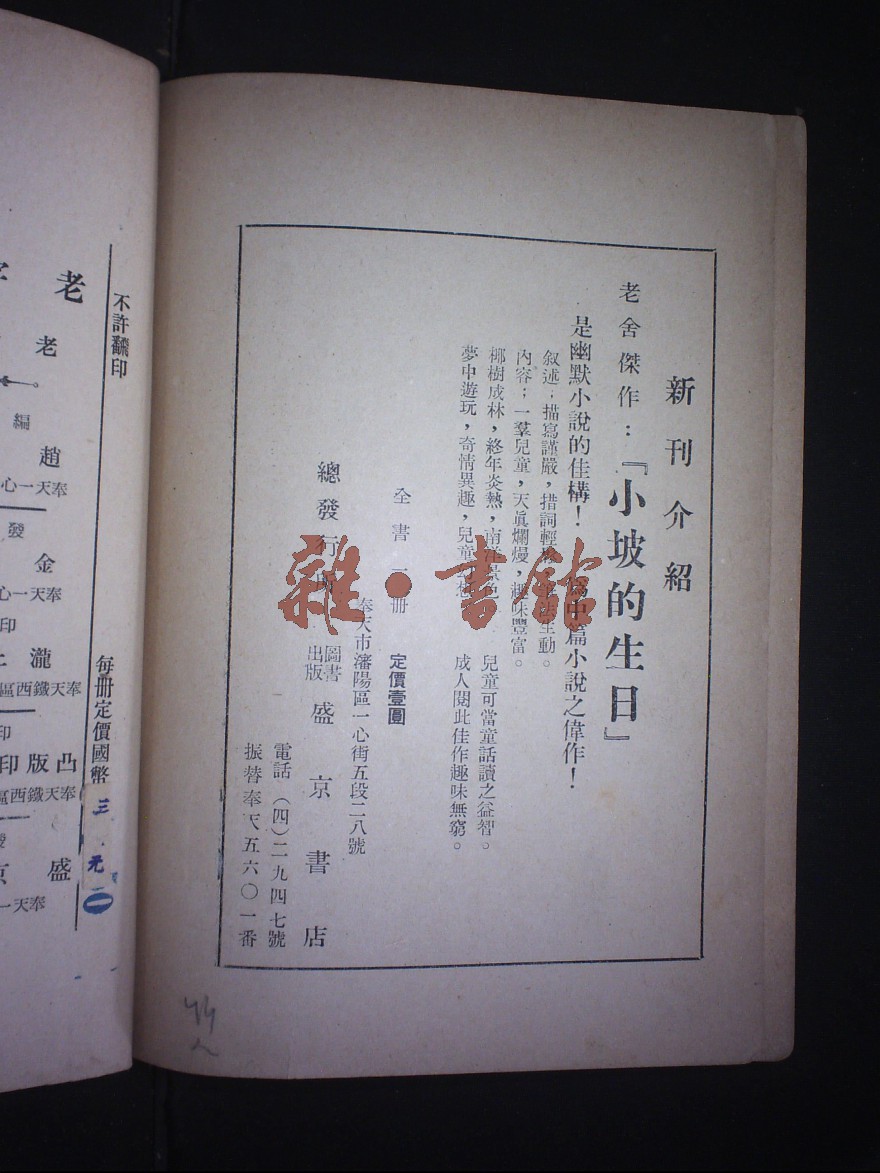 新刊介紹
老舍傑作：『小坡的生日』
是幽默小說的佳構！ 爲中篇小說之偉作！
叙述；描寫謹嚴，措詞輕 生動。
內容；一羣兒童，天眞爛熳，趣味豐富。
椰樹成林，終年炎熱，南洋景色 兒童可當童話讀之益智。
夢中遊玩，奇情異趣，兒童 成人閱此佳作趣味無窮。
全書一冊 定價壹圓
奉天市瀋陽區一心街五段二八號
總發行所 圖書出版 盛京書店
電話（四）二九四七號
振替奉天五六〇一番
雜·書館
不許翻印
每冊定價國幣三元
老
老
編 趙
奉天一心
發 金
奉天一心
印 瀧
奉天鐵西區
印
凸版印
奉天鐵西區
發 盛京
奉天一